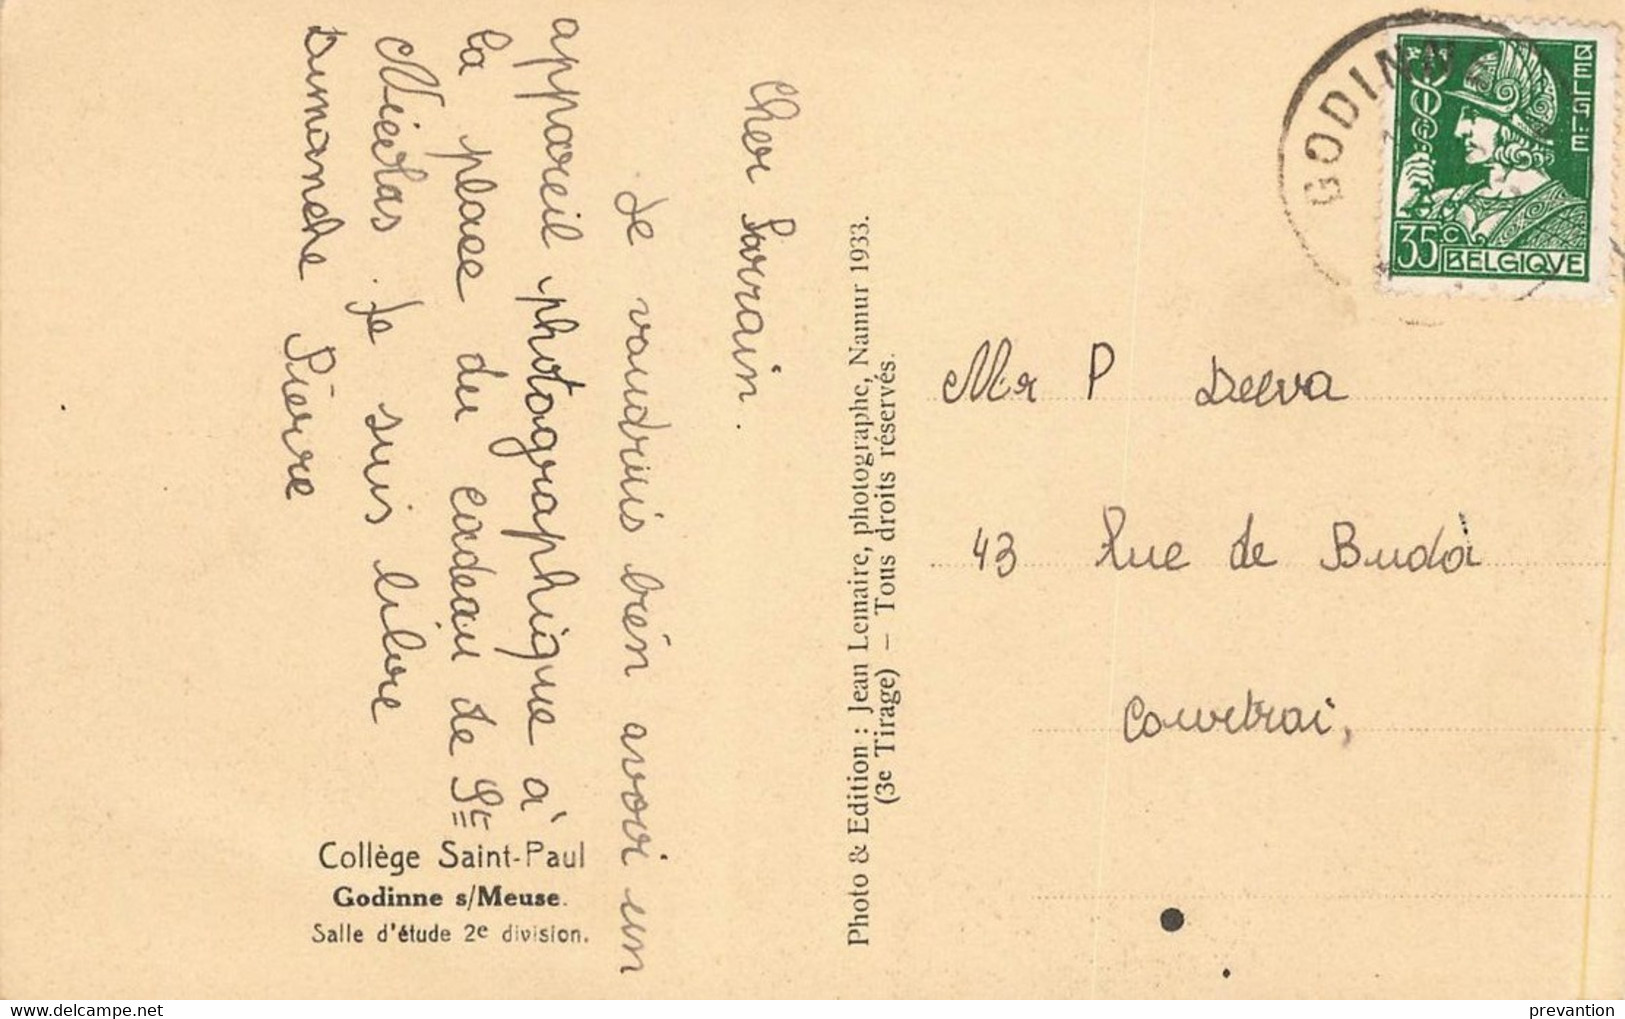 Cher Parrain.
Je voudrais bien avoir un
appareil photographique à
la place du cadeau de St
Nicolas. Je suis libre
Dimanche Pierre
Collège Saint-Paul
Godinne s/Meuse.
Salle d'étude 2e division.
Photo & Edition : Jean Lemaire, photographe, Namur 1933.
(3e Tirage) — Tous droits réservés.
GODINNE
BELGIE
35c BELGIQVE
Mr P Delva
43 Rue de Buda
Courtrai,
prevantion